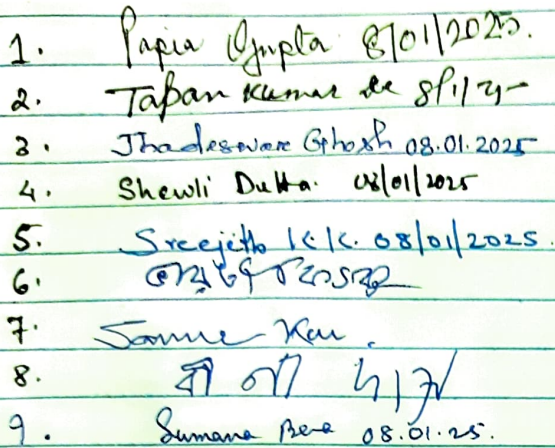 1. Papia Gupta 8/01/2025.
2. Tapan Kumar De 8/1/25
3. Jhadeswar Ghosh 08.01.2025
4. Shewli Dutta. 08/01/2025
5. Sreejith K K. 08/01/2025.
6.
7. Kar.
8.
9. Sumana Bera 08.01.25.